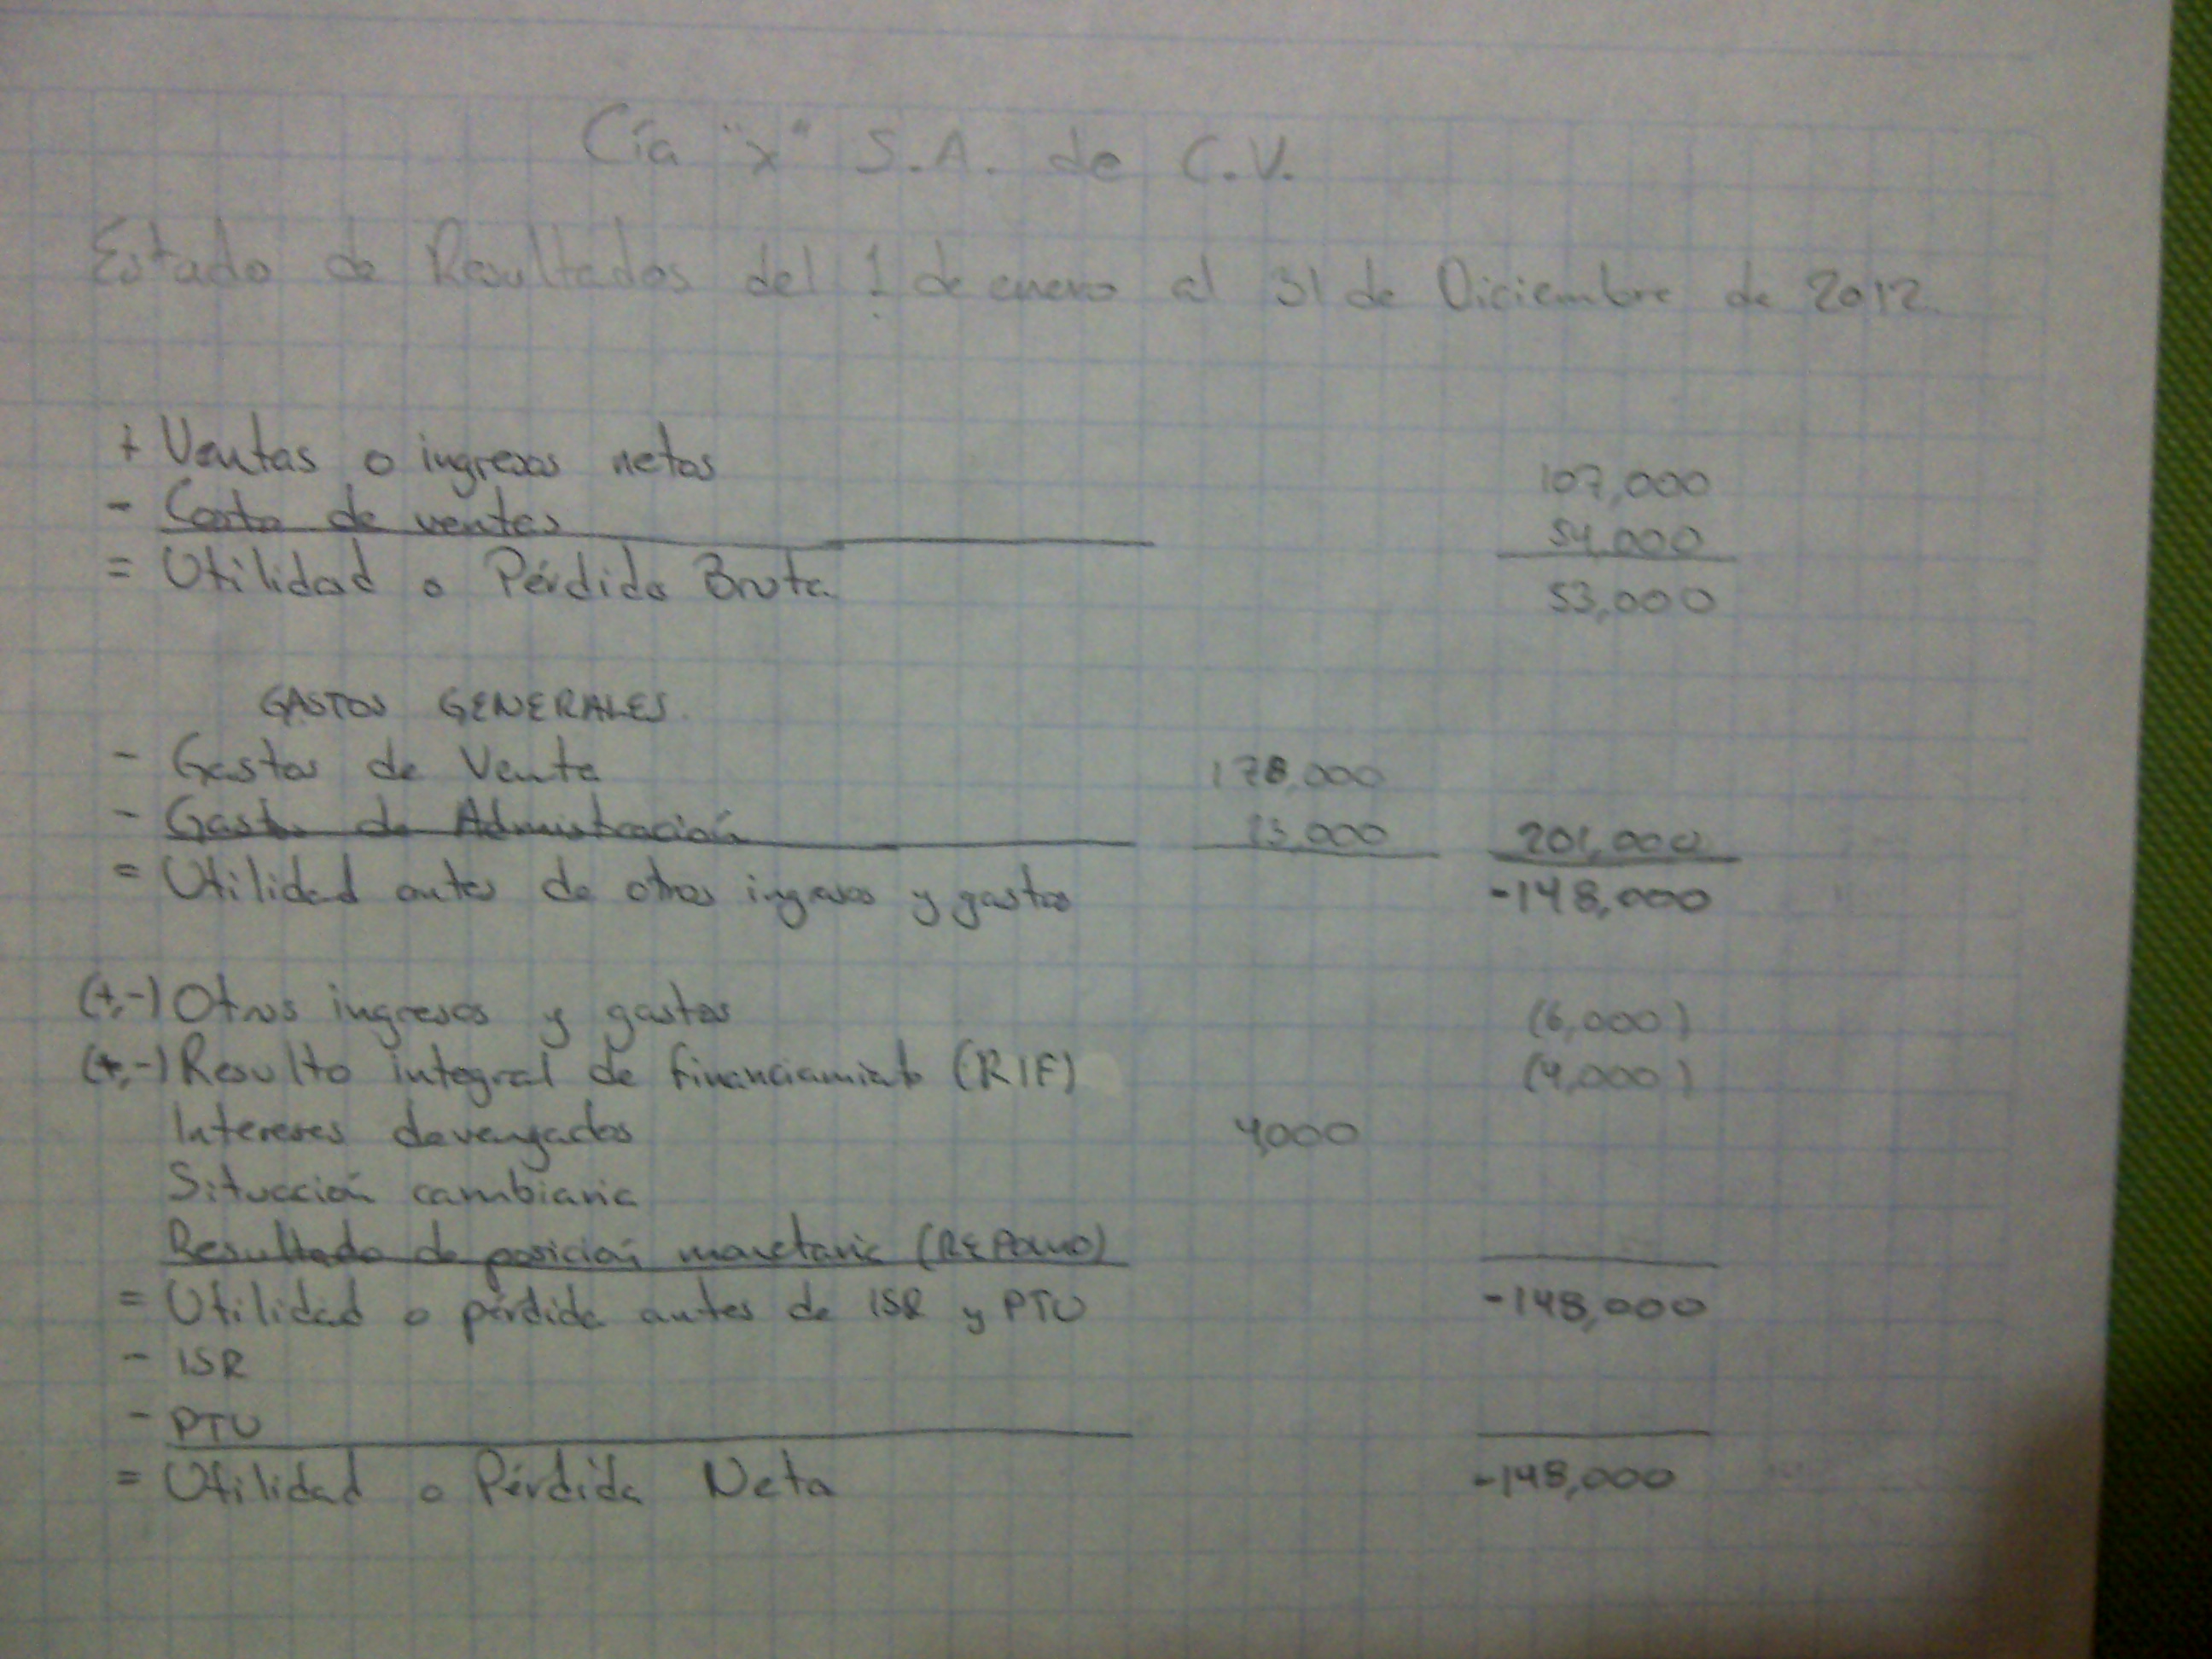 Cía "X" S.A. de C.V.
Estado de Resultados del 1 de enero al 31 de Diciembre de 2012
+ Ventas o ingresos netos 107,000
- Costo de ventas 54,000
= Utilidad o Pérdida Bruta 53,000
GASTOS GENERALES.
- Gastos de Venta 178,000
- Gastos de Administración 23,000 201,000
= Utilidad antes de otros ingresos y gastos -148,000
(+,-) Otros ingresos y gastos (6,000)
(+,-) Resulto integral de financiamiento (RIF) (4,000)
Intereses devengados 4,000
Situación cambiaria
Resultado de posición monetaria (REPOMO)
= Utilidad o pérdida antes de ISR y PTU -148,000
- ISR
- PTU
= Utilidad o Pérdida Neta -148,000